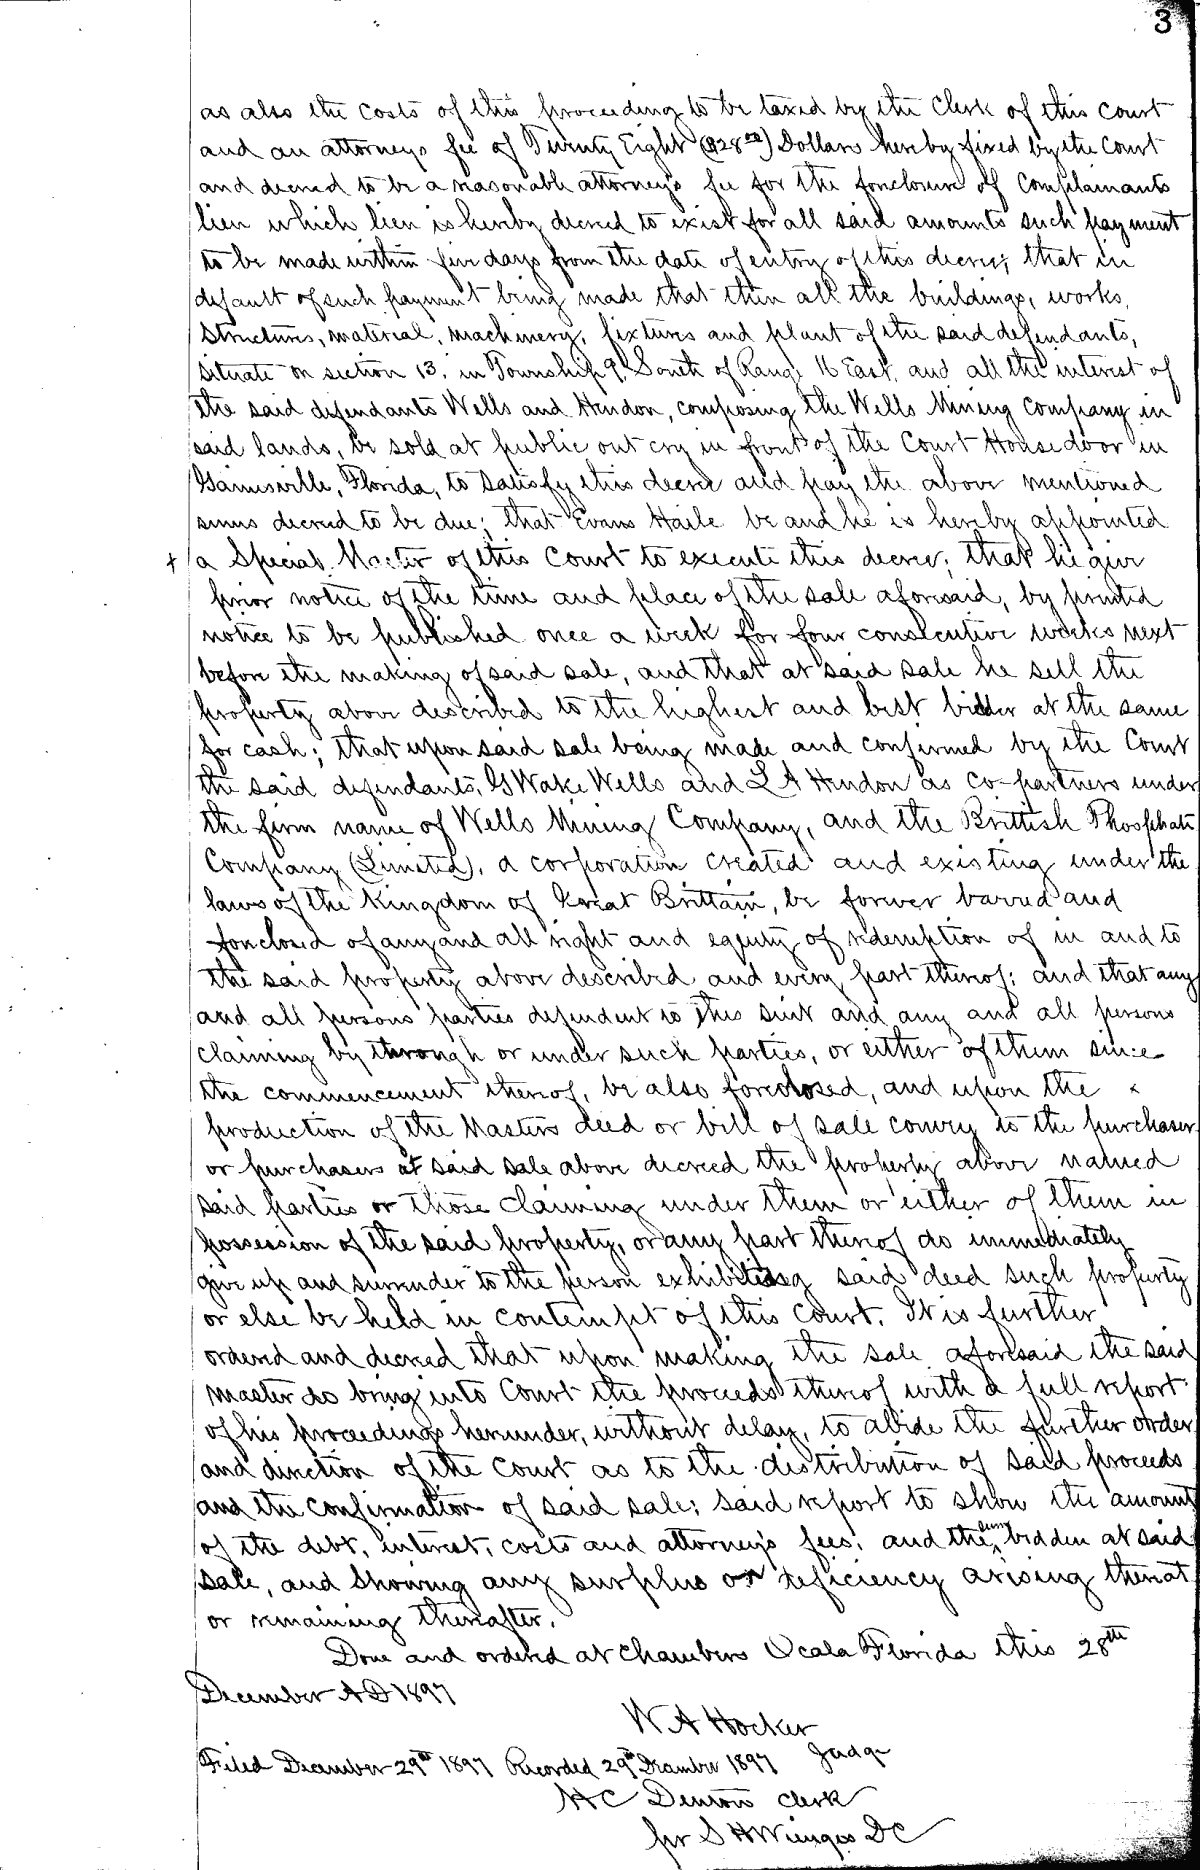 3
as also the costs of this proceeding to be taxed by the Clerk of this Court
and an attorneys fee of Twenty Eight ($28.00) Dollars hereby fixed by the Court
and decreed to be a reasonable attorney's fee for the foreclosure of Complainants
lien which lien is hereby decreed to exist for all said amounts such payment
to be made within five days from the date of entry of this decree; that in
default of such payment being made that then all the buildings, works,
Structures, material, machinery, fixtures and plant of the said defendants,
situate on section 13. in Township 9. South of Range 16 East, and all the interest of
the said defendants Wells and Hendon, composing the Wells Mining Company in
said lands, be sold at public out cry in front of the Court House door in
Gainesville, Florida, to satisfy this decree and pay the above mentioned
sums decreed to be due; that Evans Haile be and he is hereby appointed
+ a Special Master of this Court to execute this decree; that he give
prior notice of the time and place of the sale aforesaid, by printed
notice to be published once a week for four consecutive weeks next
before the making of said sale, and that at said sale he sell the
property above described to the highest and best bidder at the same
for cash; that upon said sale being made and confirmed by the Court
the said defendants, G Wake Wells and L A Hendon as co-partners under
the firm name of Wells Mining Company, and the Brittish Phosphate
Company (Limited), a corporation created and existing under the
laws of the Kingdom of Great Brittain, be forever barred and
foreclosed of any and all right and equity of redemption of in and to
the said property above described and every part thereof; and that any
and all persons parties defendent to this suit and any and all persons
claiming by through or under such parties, or either of them since
the commencement thereof, be also foreclosed, and upon the
production of the Masters deed or bill of sale convey to the purchaser
or purchasers at said sale above decreed the property above named
said parties or those claiming under them or either of them in
possession of the said property, or any part thereof do immediately
give up and surrender to the person exhibiting said deed such property
or else be held in contempt of this Court. It is further
ordered and decreed that upon making the sale aforesaid the said
master do bring into Court the proceeds thereof with a full report
of his proceedings hereunder, without delay, to abide the further order
and direction of the Court as to the distribution of said proceeds
and the confirmation of said sale; said report to show the amount
of the debt, interest, costs and attorney's fees, and the sum bidden at said
sale, and showing any surplus or deficiency arising thereat
or remaining thereafter.
Done and ordered at Chambers Ocala Florida this 28th
December AD 1897
W A Hocker
Judge
Filed December 29th 1897 Recorded 29th December 1897
H C Denton Clerk
per S H Wienges DC